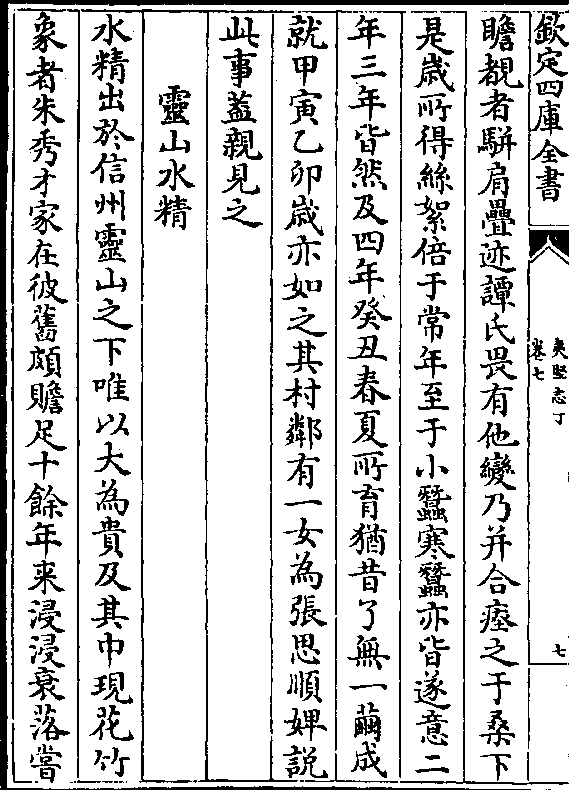 欽定四庫全書
夷堅志丁
卷七
七
瞻覩者駢肩疊迹譚氏畏有他變乃并合瘞之于桑下
是歲所得絲絮倍于常年至于小蠶寒蠶亦皆遂意二
年三年皆然及四年癸丑春夏所育猶昔了無一繭成
就甲寅乙卯歲亦如之其村鄰有一女為張思順婢説
此事葢親見之
靈山水精
水精出於信州靈山之下唯以大為貴及其中現花竹
象者朱秀才家在彼舊頗贍足十餘年来浸浸衰落嘗